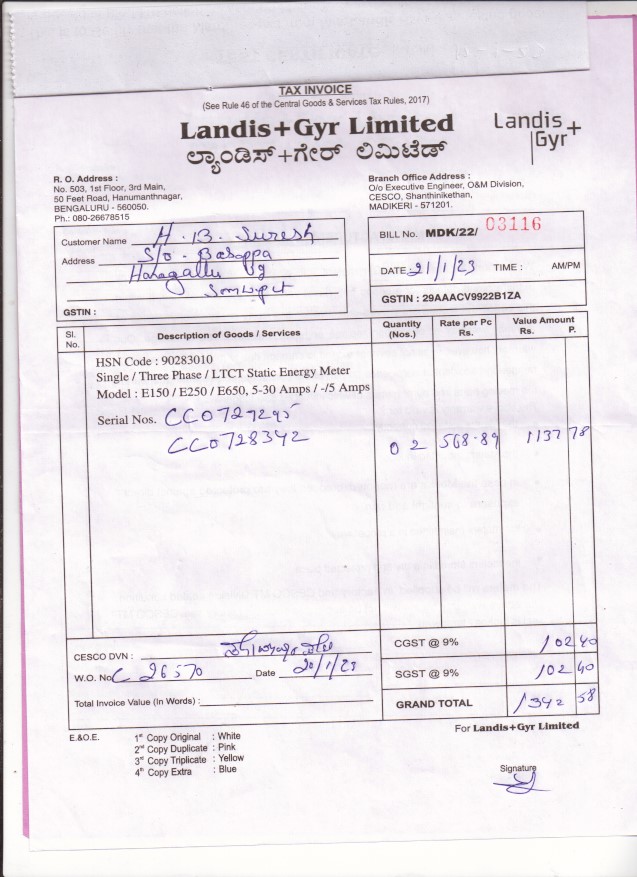 TAX INVOICE
(See Rule 46 of the Central Goods & Services Tax Rules, 2017)
Landis+Gyr Limited
ಲ್ಯಾಂಡಿಸ್+ಗೇರ್ ಲಿಮಿಟೆಡ್
Landis+
Gyr
R. O. Address :
No. 503, 1st Floor, 3rd Main,
50 Feet Road, Hanumanthnagar,
BENGALURU - 560050.
Ph.: 080-26678515
Branch Office Address :
O/o Executive Engineer, O&M Division,
CESCO, Shanthinikethan,
MADIKERI - 571201.
Customer Name H. B. Suresh
Address S/o. Basappa
Haragallu
GSTIN :
BILL No. MDK/22/ 03116
DATE 21/1/23 TIME : AM/PM
GSTIN : 29AAACV9922B1ZA
Sl. No. Description of Goods / Services Quantity (Nos.) Rate per Pc Rs. Value Amount Rs. P.
HSN Code : 90283010
Single / Three Phase / LTCT Static Energy Meter
Model : E150 / E250 / E650, 5-30 Amps / -/5 Amps
Serial Nos. CC0727295
CC0728342 02 568.89 1137 78
CESCO DVN :
W.O. No. C 26570 Date 20/1/23
Total Invoice Value (In Words) :
CGST @ 9% 102 40
SGST @ 9% 102 40
GRAND TOTAL 1342 58
E.&O.E.
1st Copy Original : White
2nd Copy Duplicate : Pink
3rd Copy Triplicate : Yellow
4th Copy Extra : Blue
For Landis+Gyr Limited
Signature